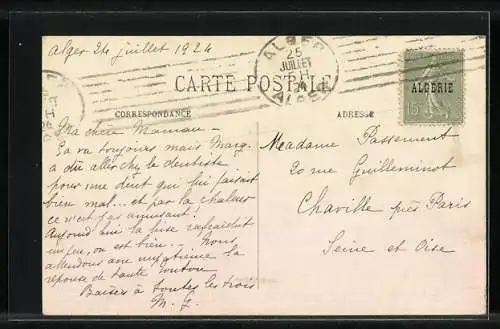 Alger 24 juillet 1924
ALGER
25
JUILLET
24
ALGER
ALGÉRIE
15
CARTE POSTALE
CORRESPONDANCE
ADRESSE
Ma chère Maman -
Ça va toujours mais Marg.
a dû aller chez le dentiste
pour une dent qui lui faisait
bien mal... et par la chaleur
ce n'est pas amusant!
Aujourd'hui la brise rafraichit
un peu, on est bien... Nous
attendons avec impatience la
réponse de tante
Baisers à toutes les trois
Madame Passement
20 rue Guilleminot
Chaville près Paris
Seine et Oise